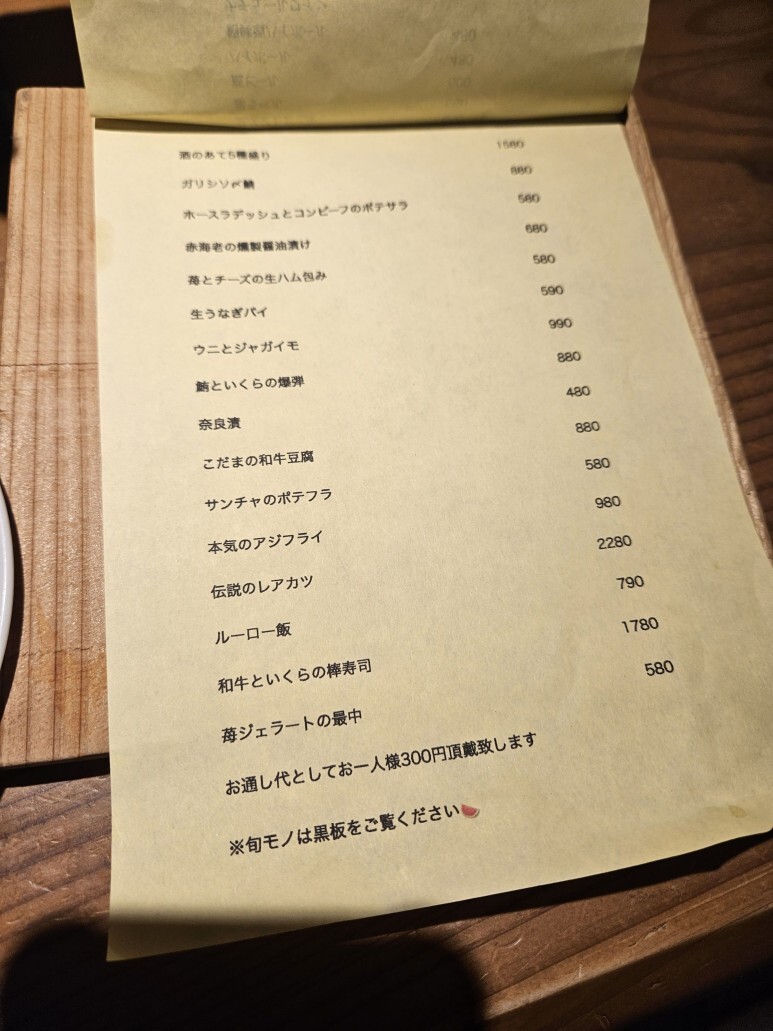 酒のあて5種盛り 1580
ガリシソ〆鯖 880
ホースラデッシュとコンビーフのポテサラ 580
赤海老の燻製醤油漬け 680
苺とチーズの生ハム包み 580
生うなぎパイ 590
ウニとジャガイモ 990
鮪といくらの爆弾 880
奈良漬 480
こだまの和牛豆腐 880
サンチャのポテフラ 580
本気のアジフライ 980
伝説のレアカツ 2280
ルーロー飯 790
和牛といくらの棒寿司 1780
苺ジェラートの最中 580
お通し代としてお一人様300円頂戴致します
※旬モノは黒板をご覧ください🍉